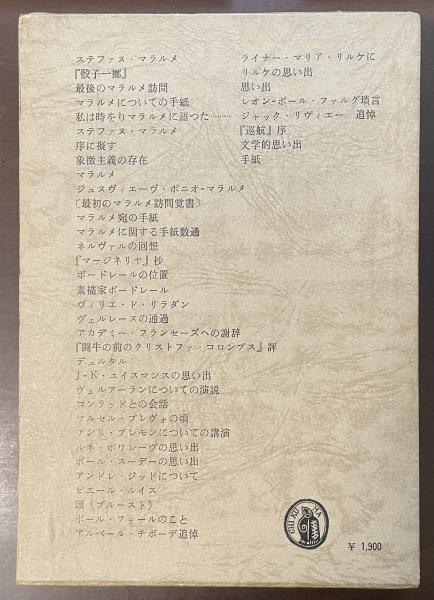 ステファヌ・マラルメ
『骰子一擲』
最後のマラルメ訪問
マラルメについての手紙
私は時をりマラルメに語つた……
ステファヌ・マラルメ
序に擬す
象徴主義の存在
マラルメ
ジュヌヴィエーヴ・ボニオ-マラルメ
〔最初のマラルメ訪問覚書〕
マラルメ宛の手紙
マラルメに関する手紙数通
ネルヴァルの回想
『マージネリヤ』抄
ボードレールの位置
素描家ボードレール
ヴィリエ・ド・リラダン
ヴェルレーヌの通過
アカデミー・フランセーズへの謝辞
『闘牛の前のクリストファ・コロンブス』評
デュルタル
J-K・ユイスマンスの思い出
ヴェルアーランについての演説
コンラッドとの会話
マルセル・プレヴォの頃
アンリ・ブレモンについての講演
ルネ・ボワレーヴの思い出
ポール・スーデーの思い出
アンドレ・ジッドについて
ピエール・ルイス
頌（プルースト）
ポール・フォールのこと
アルベール・チボーデ追悼
ライナー・マリア・リルケに
リルケの思い出
思い出
レオン-ポール・ファルグ瑣言
ジャック・リヴィエー　追悼
『巡航』序
文学的思い出
手紙
￥ 1,900